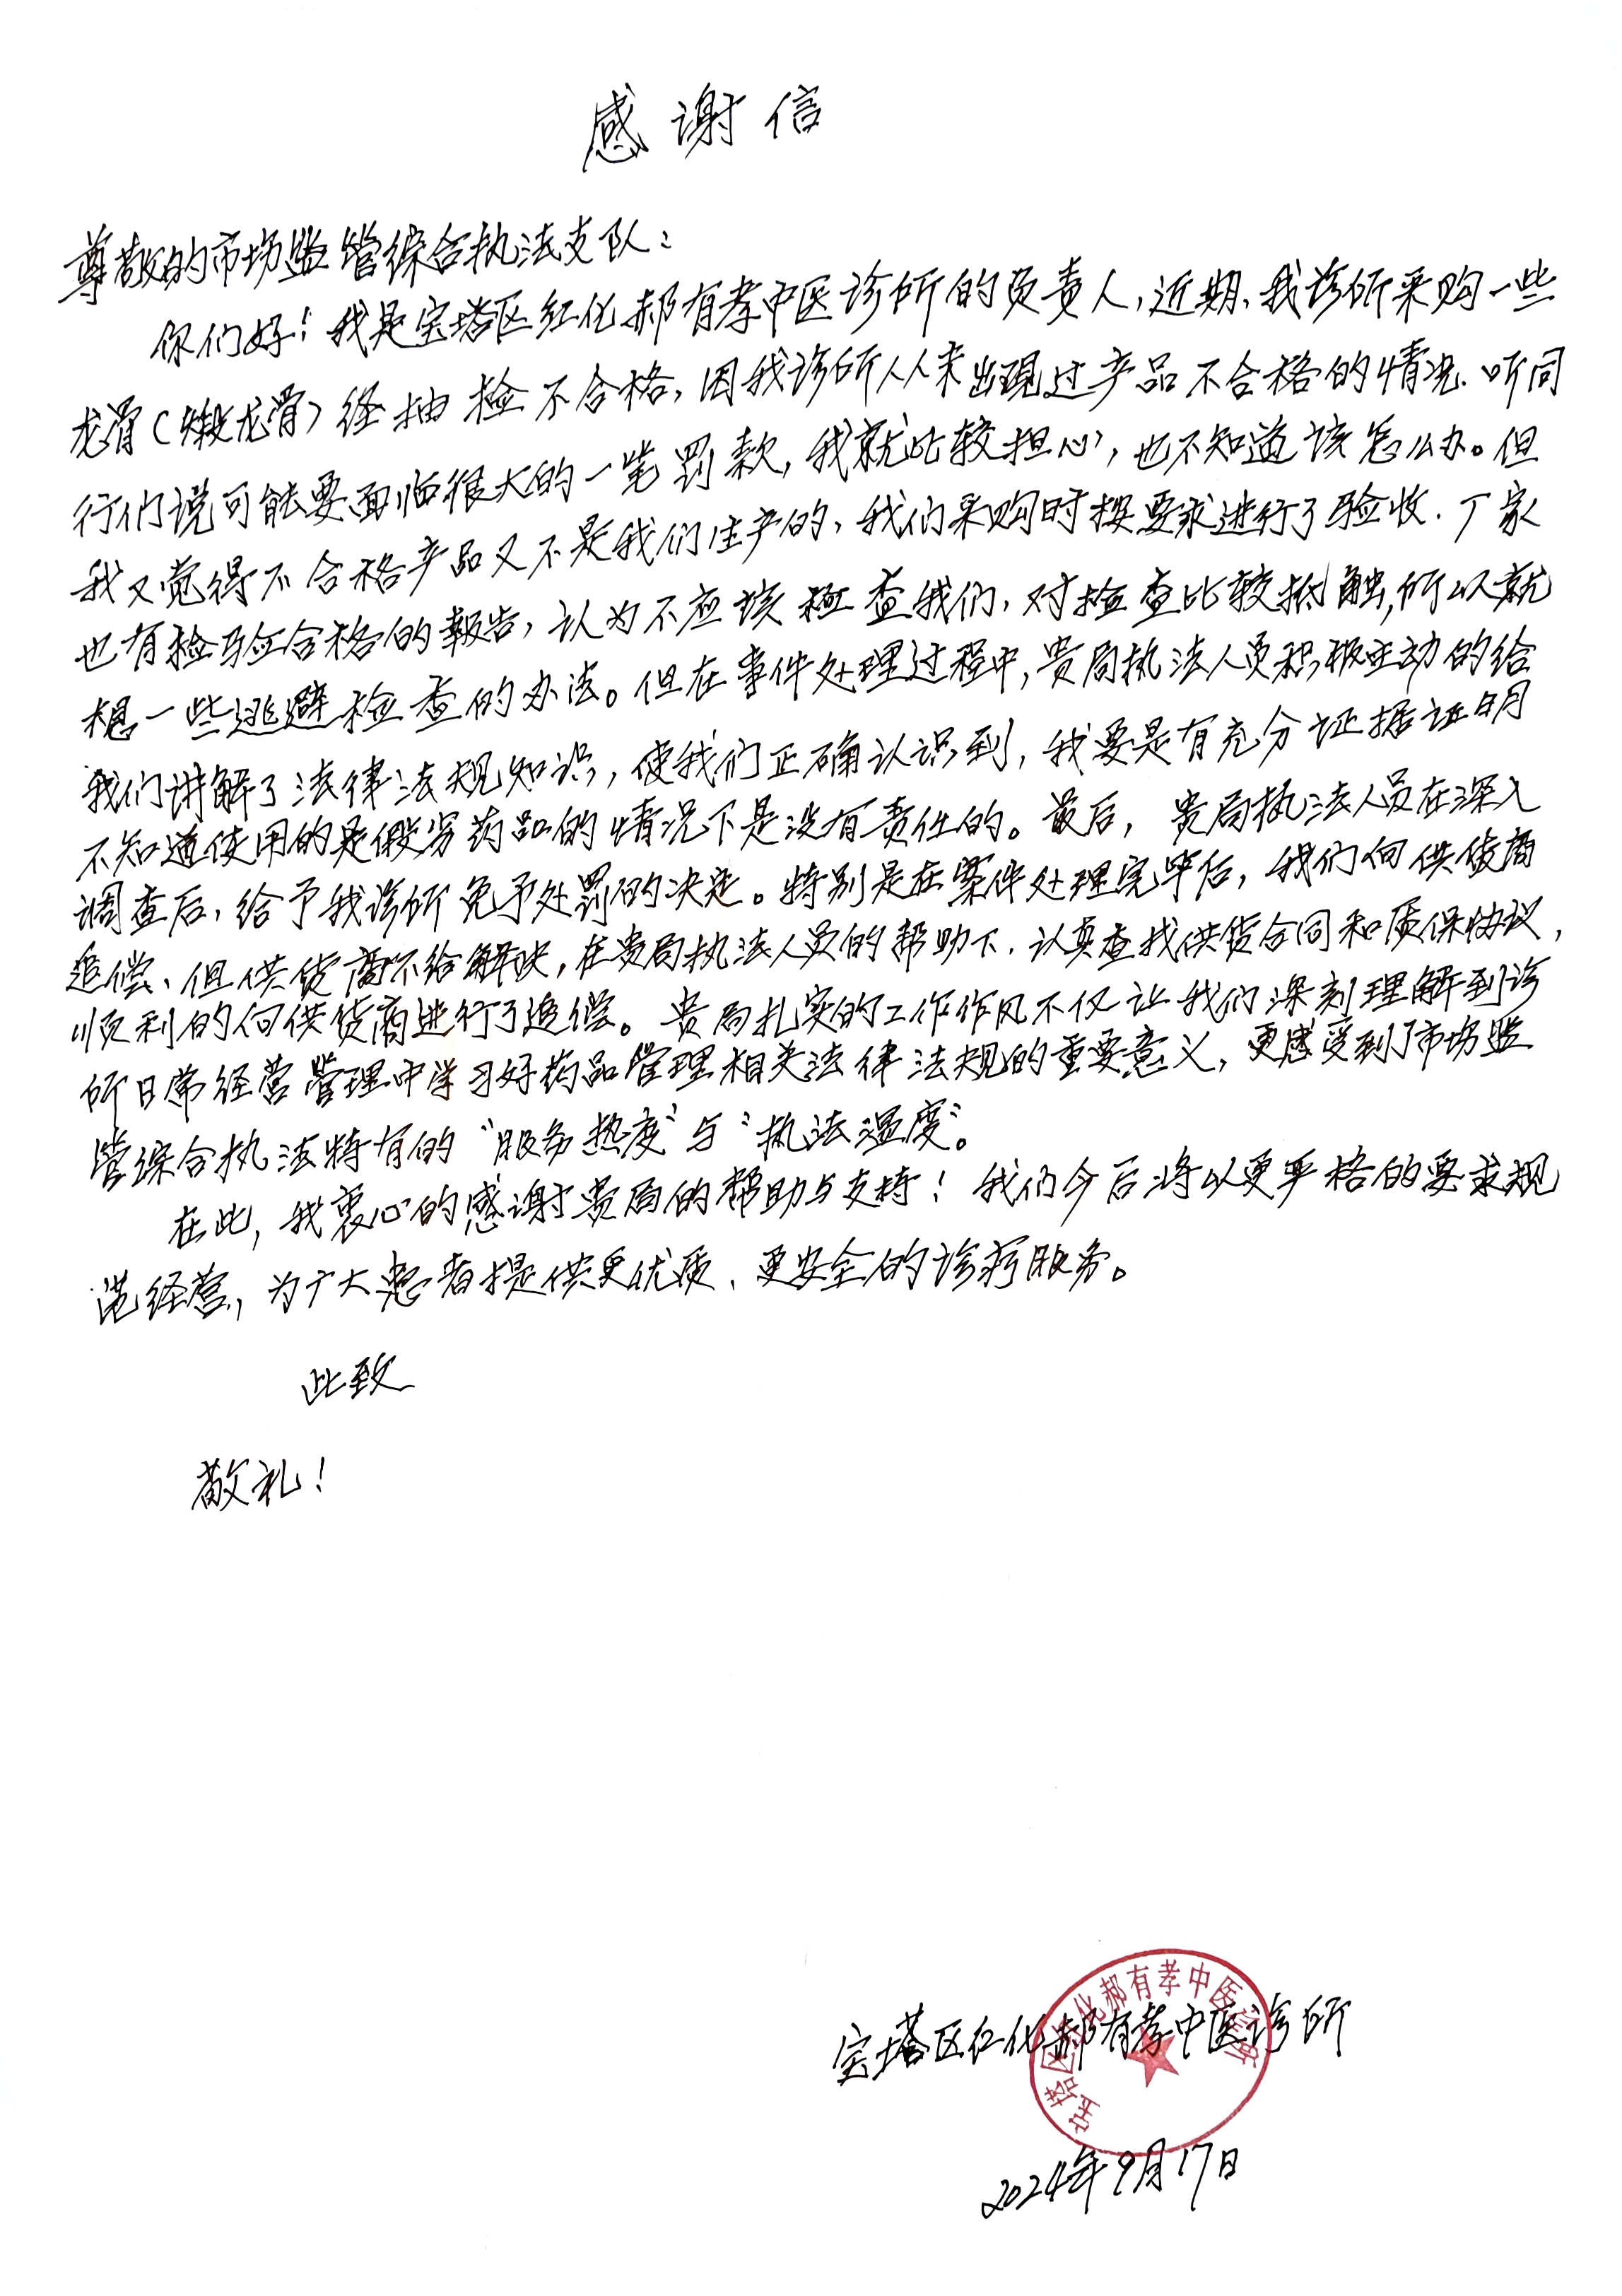 感谢信
尊敬的市场监管综合执法支队：
你们好！我是宝塔区红化郝有孝中医诊所的负责人，近期、我诊所采购一些
龙骨（煅龙骨）经抽检不合格，因我诊所从未出现过产品不合格的情况．听同
行们说可能要面临很大的一笔罚款，我就比较担心，也不知道该怎么办。但
我又觉得不合格产品又不是我们生产的，我们采购时按要求进行了验收．厂家
也有检验合格的报告，认为不应该检查我们，对检查比较抵触，所以就
想一些逃避检查的办法。但在事件处理过程中，贵局执法人员积极主动的给
我们讲解了法律法规知识，使我们正确认识到，我要是有充分证据证明
不知道使用的是假劣药品的情况下是没有责任的。最后，贵局执法人员在深入
调查后，给予我诊所免予处罚的决定。特别是在案件处理完毕后，我们向供货商
追偿、但供货商不给解决，在贵局执法人员的帮助下．认真查找供货合同和质保协议，
顺利的向供货商进行了追偿。贵局扎实的工作作风不仅让我们深刻理解到诊
所日常经营管理中学习好药品管理相关法律法规的重要意义，更感受到了市场监
管综合执法特有的“服务热度”与“执法温度”。
在此，我衷心的感谢贵局的帮助与支持！我们今后将以更严格的要求规
范经营，为广大患者提供更优质、更安全的诊疗服务。
此致
敬礼！
宝塔区红化郝有孝中医诊所
宝塔区红化郝有孝中医诊所
2024年9月17日